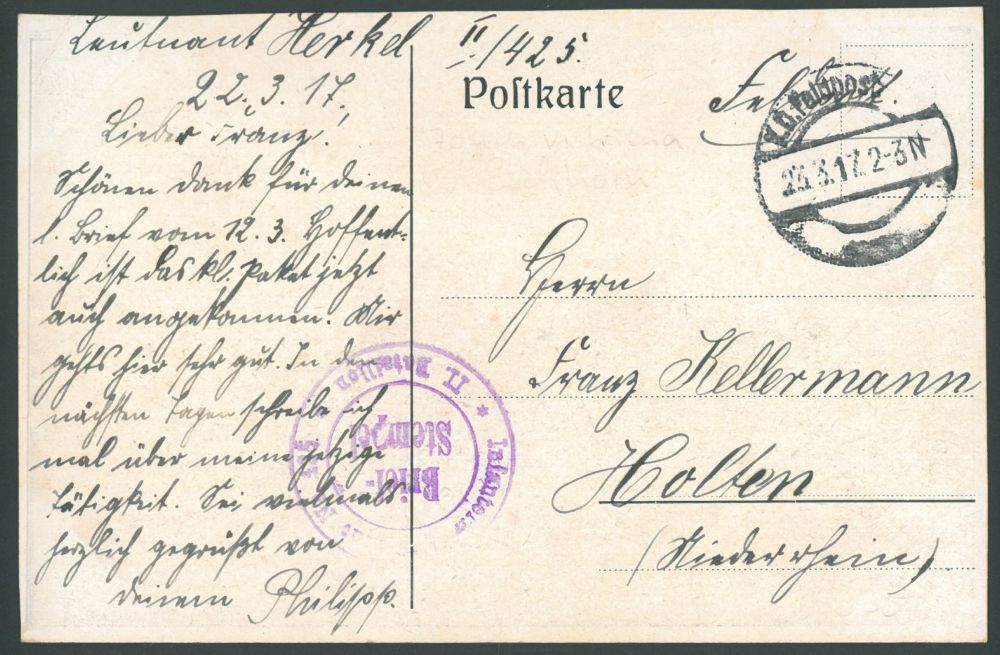 Leutnant Herkel
II/425.
22.3.17.
Lieber Franz!
Schönen Dank für deinen
l. Brief vom 12.3. Hoffent-
lich ist das kl. Paket jetzt
auch angekommen. Mir
gehts hier sehr gut. In den
nächsten Tagen schreibe ich
mal über meine jetzige
Tätigkeit. Sei vielmals
herzlich gegrüßt von
deinem Philipp.
Postkarte
Feldpost.
K.D. Feldpost
23.3.17. 2-3 N
Herrn
Franz Kellermann
Holten
(Niederrhein)
II. Bataillon
Brief-
Stempel